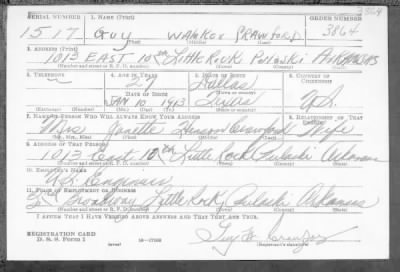 SERIAL NUMBER 1. NAME (Print) ORDER NUMBER
1517 GUY WALKER CRAWFORD 3864
(First) (Middle) (Last)
2. ADDRESS (Print)
1013 EAST 10th LITTLE ROCK PULASKI ARKANSAS
(Number and street or R. F. D. number) (Town) (County) (State)
3. TELEPHONE 4. AGE IN YEARS 5. PLACE OF BIRTH 6. COUNTRY OF CITIZENSHIP
27 Dallas
(Town or county)
DATE OF BIRTH
JAN 10 1913 Texas U.S.
(Exchange) (Number) (Mo.) (Day) (Yr.) (State or country)
7. NAME OF PERSON WHO WILL ALWAYS KNOW YOUR ADDRESS 8. RELATIONSHIP OF THAT PERSON
Mrs. Janette Crawford Wife
(Mr., Mrs., Miss) (First) (Middle) (Last)
9. ADDRESS OF THAT PERSON
1013 East 10th Little Rock Pulaski Arkansas
(Number and street or R. F. D. number) (Town) (County) (State)
10. EMPLOYER'S NAME
U.S. Engineers
11. PLACE OF EMPLOYMENT OR BUSINESS
Broadway Little Rock, Pulaski Arkansas
(Number and street or R. F. D. number) (Town) (County) (State)
I AFFIRM THAT I HAVE VERIFIED ABOVE ANSWERS AND THAT THEY ARE TRUE.
REGISTRATION CARD
D. S. S. Form 1 (over) 16-17105 Guy W. Crawford
(Registrant's signature)